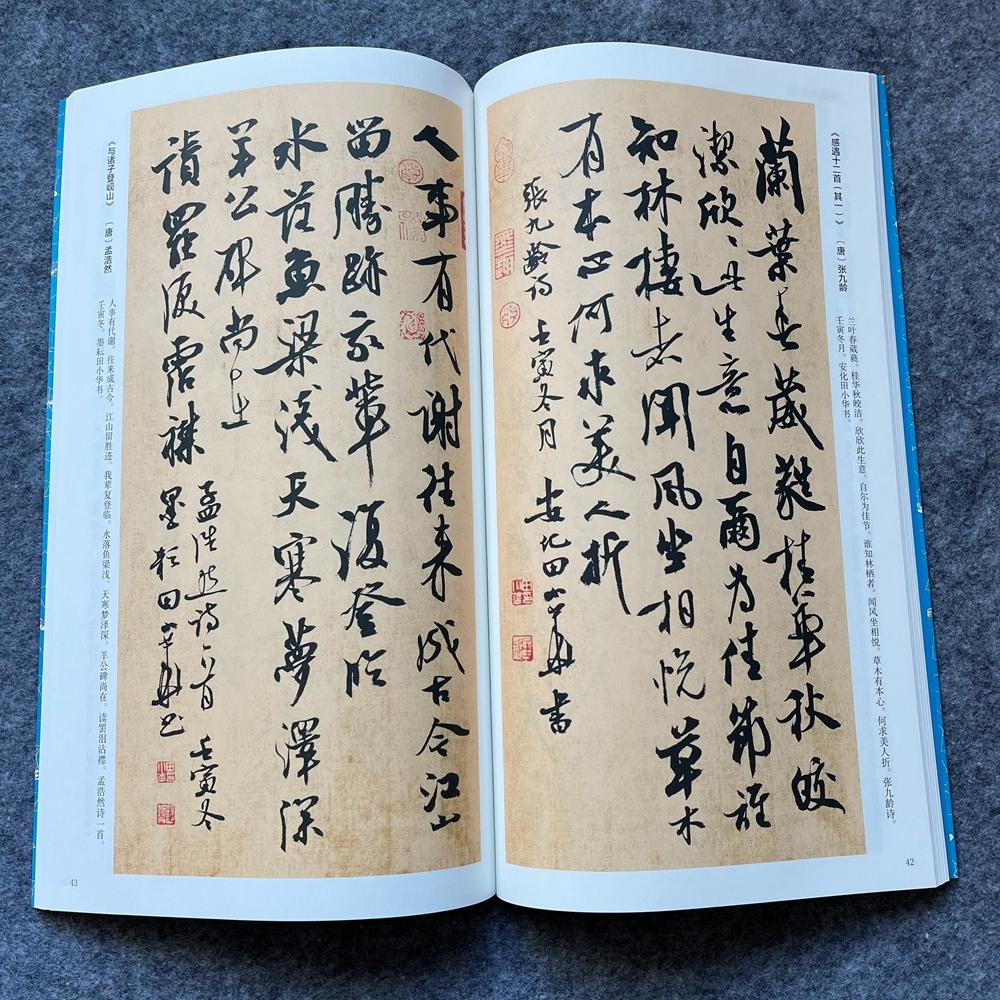 《感遇十二首（其一）》 〔唐〕张九龄
兰叶春葳蕤。桂华秋皎洁。欣欣此生意。自尔为佳节。谁知林栖者。闻风坐相悦。草木有本心。何求美人折。张九龄诗。
壬寅冬月。安化田小华书。
蘭葉春葳蕤桂華秋皎
潔欣〻此生意自爾為佳節誰
知林棲者聞風坐相悅草木
有本心何求美人折
張九齡詩 壬寅冬月 安化田小華書
42
人事有代謝往來成古今江山
留勝跡我輩復登臨
水落魚梁淺天寒夢澤深
羊公碑尚在
讀罷淚霑襟
孟浩然詩一首 壬寅冬
墨耘田小華書
《与诸子登岘山》 〔唐〕孟浩然
人事有代谢。往来成古今。江山留胜迹。我辈复登临。水落鱼梁浅。天寒梦泽深。羊公碑尚在。读罢泪沾襟。孟浩然诗一首。
壬寅冬。墨耘田小华书。
43